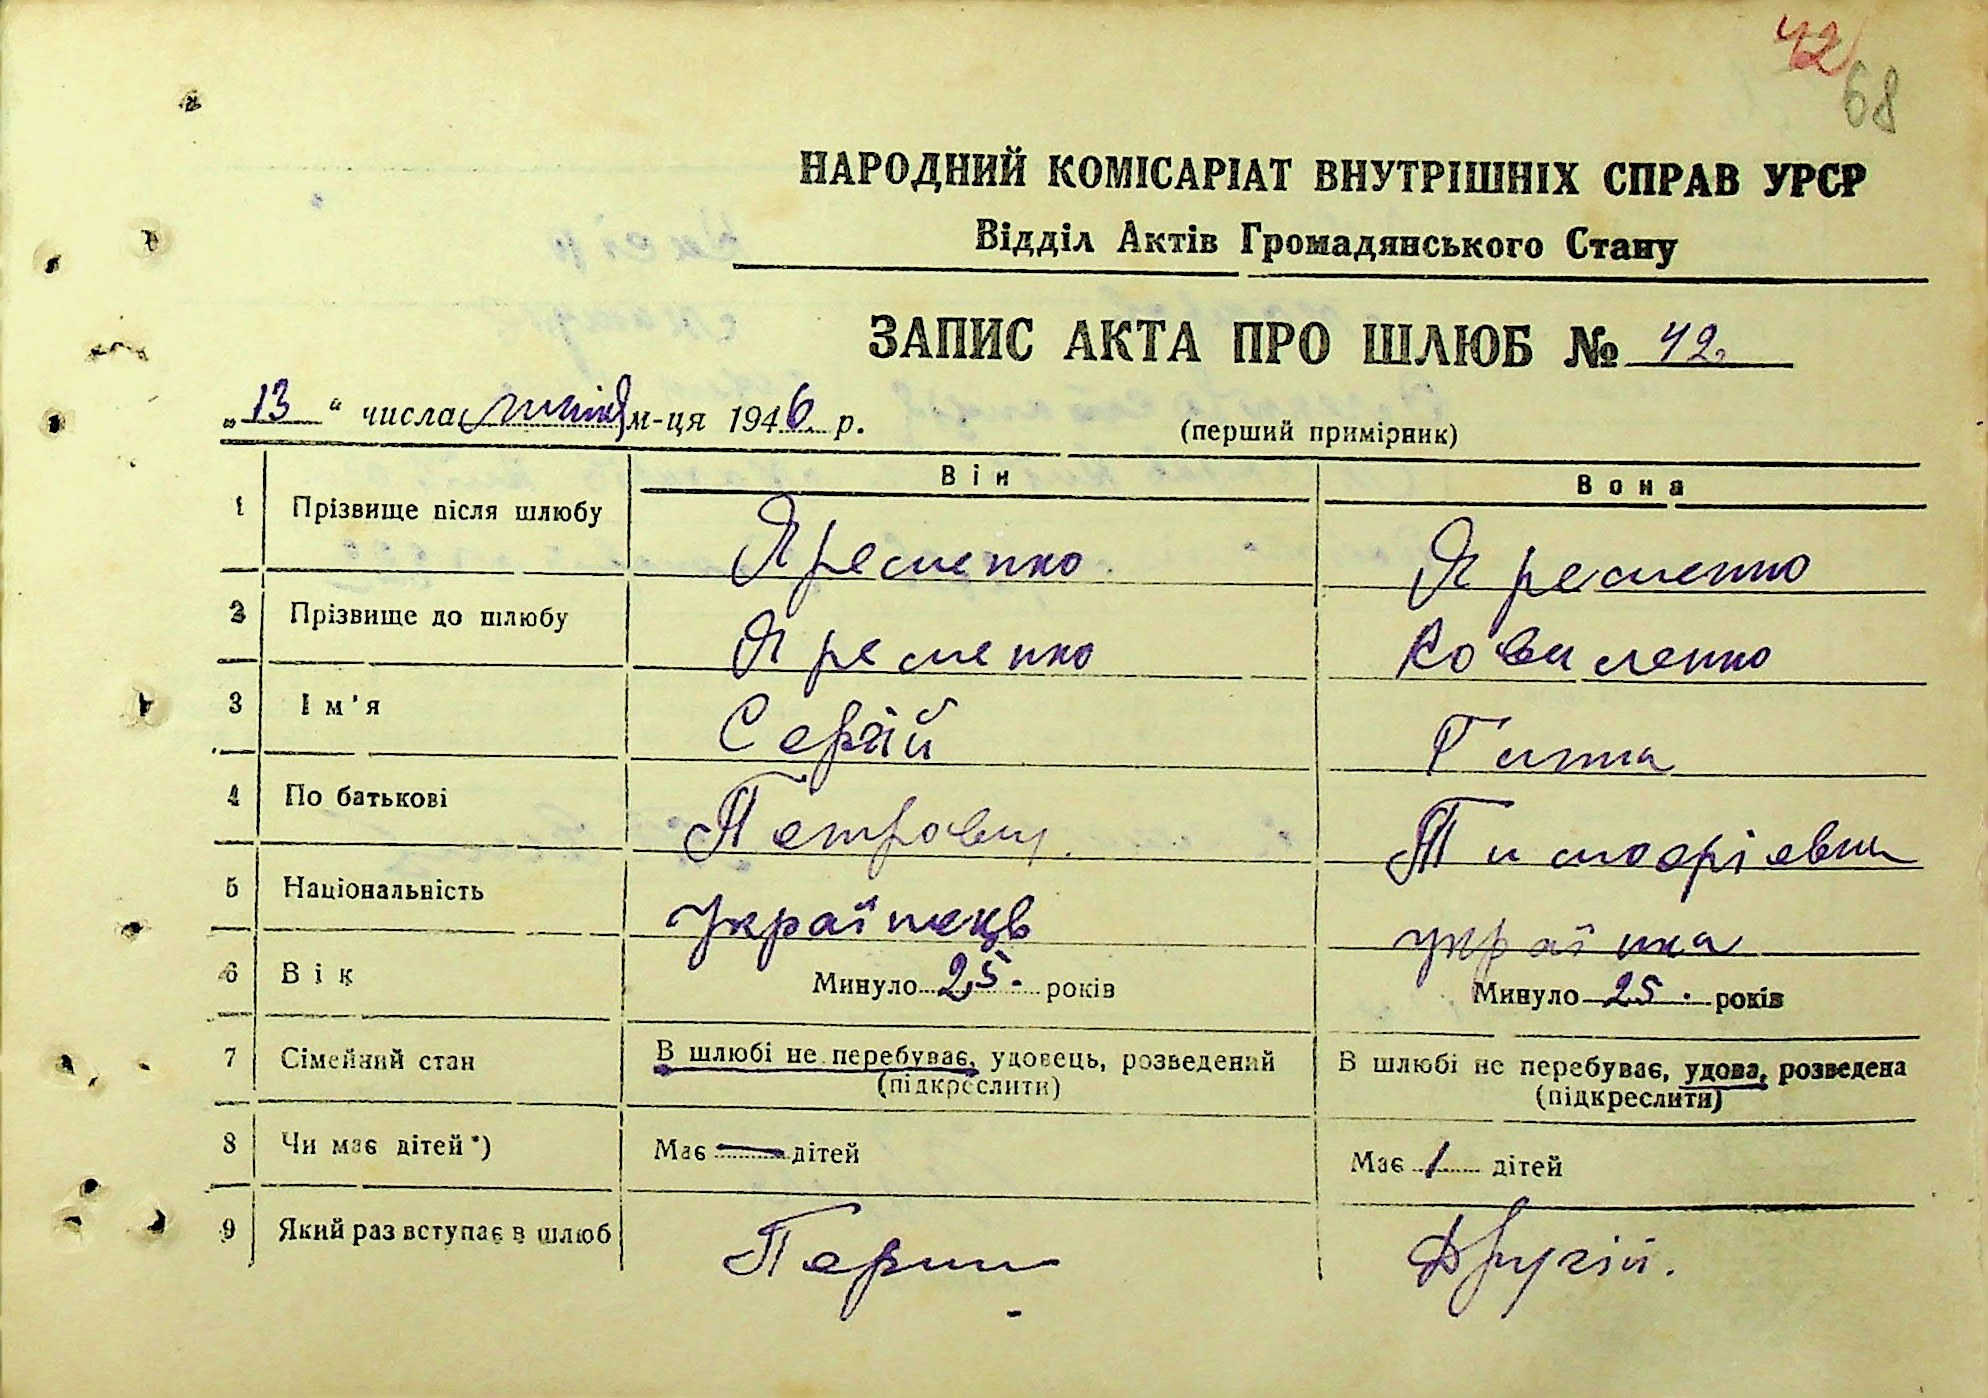 42
68
НАРОДНИЙ КОМІСАРІАТ ВНУТРІШНІХ СПРАВ УРСР
Відділ Актів Громадянського Стану
ЗАПИС АКТА ПРО ШЛЮБ № 42
„13“ числа м-ця 1946 р.
(перший примірник)
Він Вона
1 Прізвище після шлюбу Яременко Яременко
2 Прізвище до шлюбу Яременко Коваленко
3 Ім'я Сергій Ганна
4 По батькові Петрович Тимофієвна
5 Національність Українець українка
6 Вік Минуло 25 років Минуло 25 років
7 Сімейний стан В шлюбі не перебуває, удовець, розведений В шлюбі не перебуває, удова, розведена
(підкреслити) (підкреслити)
8 Чи має дітей*) Має — дітей Має 1 дітей
9 Який раз вступає в шлюб Перши Другій.